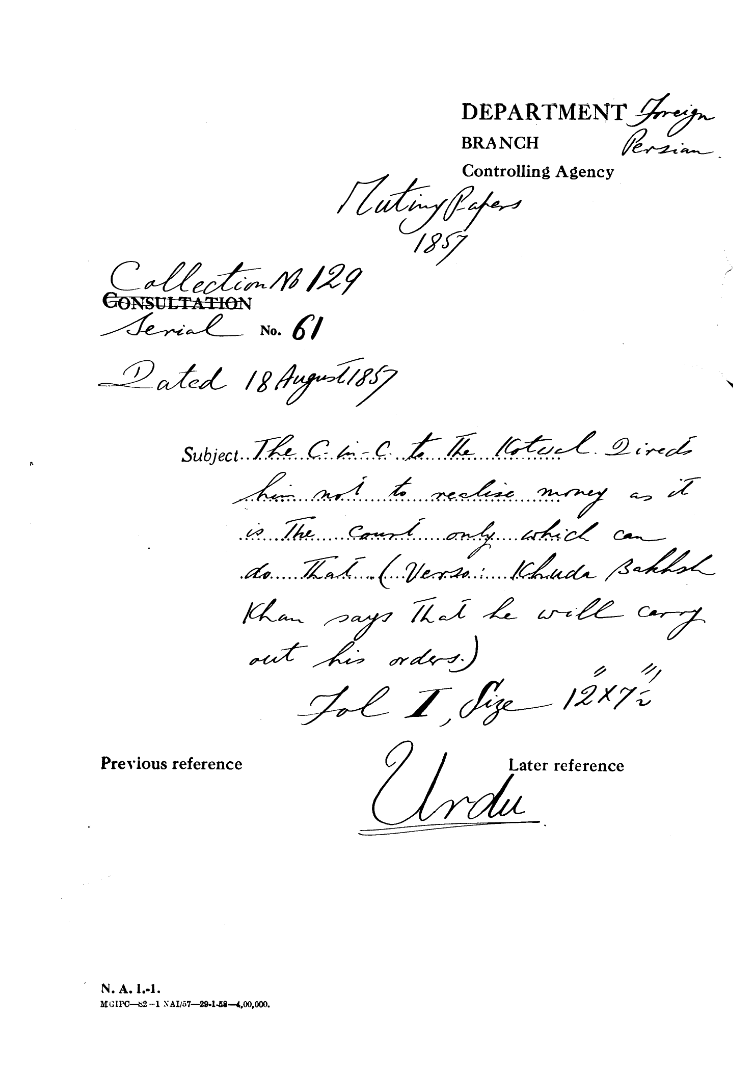 DEPARTMENT Foreign
BRANCH Persian
Controlling Agency
Mutiny Papers
1857
Collection No 129
CONSULTATION
Serial No. 61
Dated 18 August 1857
Subject. The C-in-C. to the Kotwal. Directs
him not to realise money as it
is the court only which can
do that. (Verso: Khuda Bakhsh
Khan says that he will carry
out his orders.)
Fol I, Size 12" x 7½"
Previous reference
Later reference
Urdu
N. A. I.-1.
MGIPC—S2—1 NAI/57—29-1-58—4,00,000.